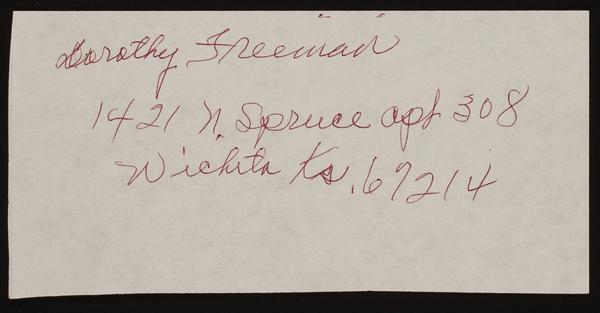 Dorothy Freeman
1421 N. Spruce apt 308
Wichita Ks. 67214